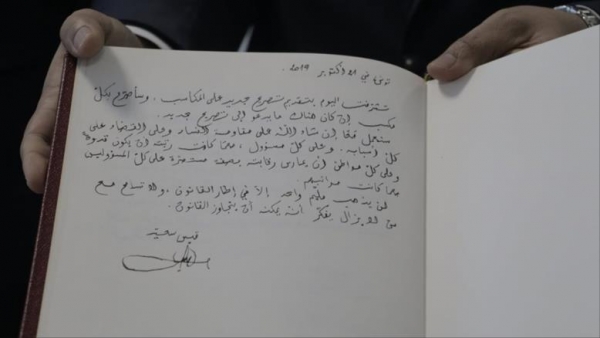 تونس في 21 أكتوبر 2019.
تشرفت اليوم بتقديم تصريح جديد على المكاسب. وسأصرّح بكل
مكسب إن كان هناك ما يدعو إلى تصريح جديد.
سنعمل معا إن شاء الله على مقاومة الفساد وعلى القضاء على
كل أسبابه. وعلى كل مسؤول، مهما كانت رتبته أن يكون قدوة
وعلى كل مواطن أن يمارس رقابته بصفة مستمرة على كل المسؤولين
مهما كانت مراتبهم.
لن يذهب مليم واحد إلاّ في إطار القانون، ولا تسامح مع
من لا يزال يفكّر أنه يمكن أن يتجاوز القانون.
قيس سعيّد